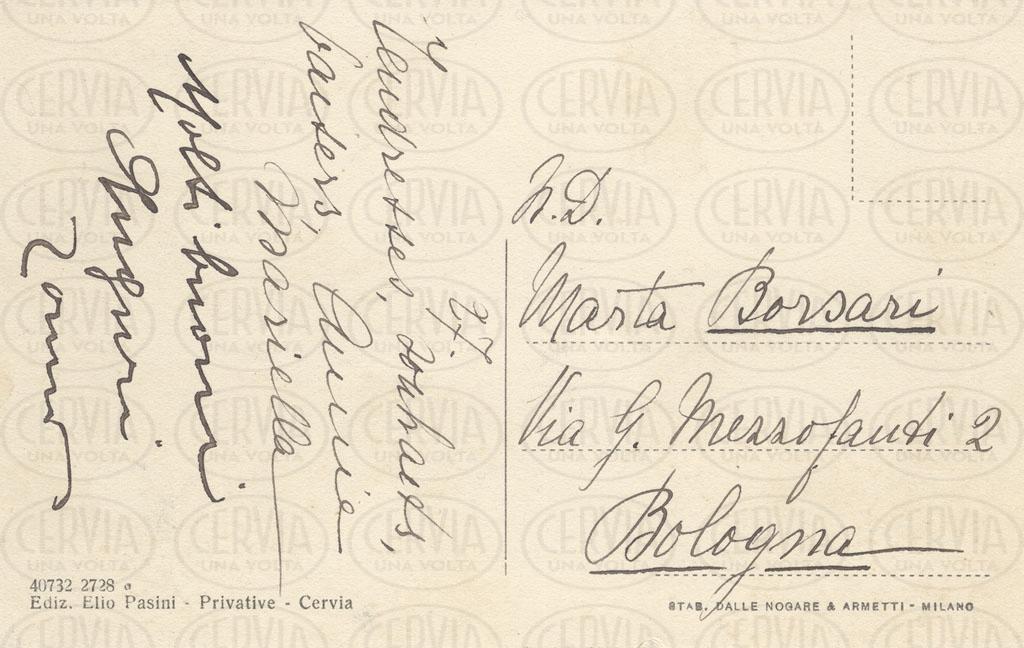 27.
Tendresses, souhaits,
baisers Annie
Mariella
Molti buoni
Auguri.
N. D.
Marta Borsari
Via G. Mezzofanti 2
Bologna
40732 2728 a
Ediz. Elio Pasini - Privative - Cervia
STAB. DALLE NOGARE & ARMETTI - MILANO
CERVIA
UNA VOLTA